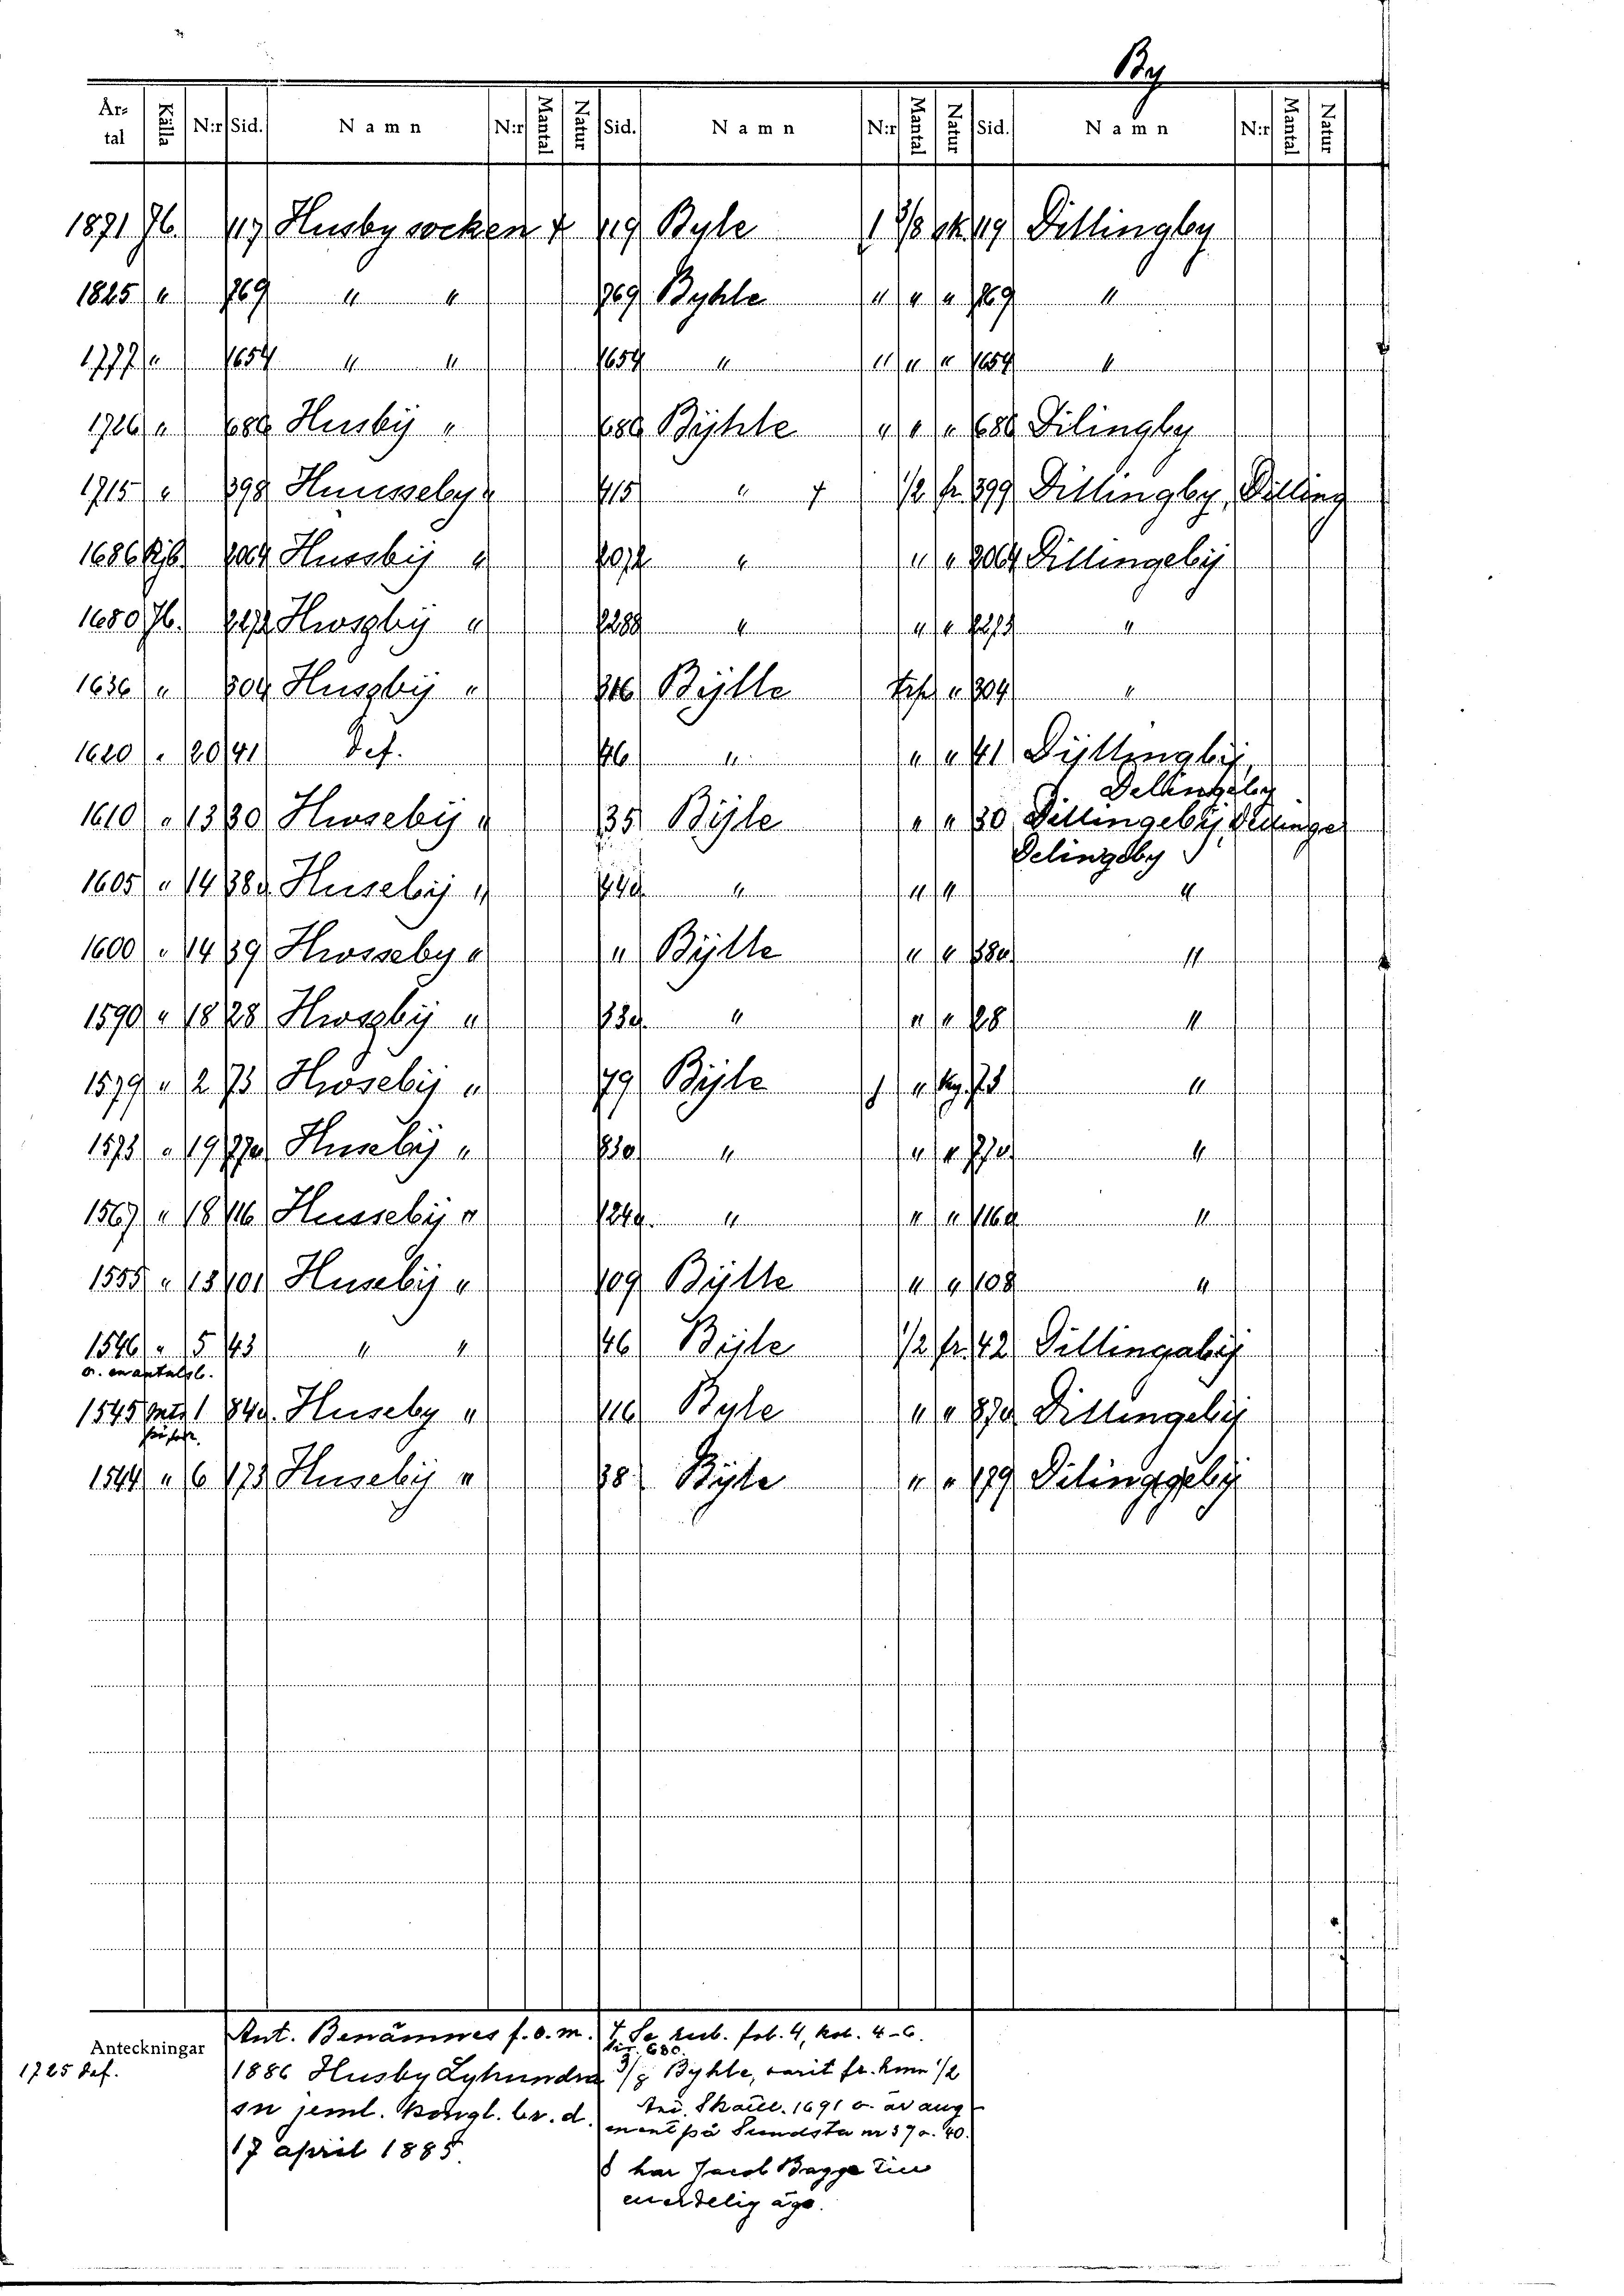 By
Årtal Källa N:r Sid. Namn N:r Mantal Natur Sid. Namn N:r Mantal Natur Sid. Namn N:r Mantal Natur
1871 Jb. 117 Husby socken + 119 Byle 1 3/8 sk. 119 Dillingby
1825 " 769 " " 769 Byhle " " " 769 "
1777 " 1654 " " 1654 " " " " 1654 "
1726 " 686 Husbÿ " 686 Bÿhle " " " 686 Dilingby
1715 " 398 Huusseby " 415 " + 1/2 fr. 399 Dillingby, Dilling
1686 Rjb. 2064 Hussbÿ " 2072 " " " 2064 Dillingebÿ
1650 Jb. 2272 Hwszbÿ " 2288 " " " 2273 "
1636 " 304 Huszbÿ " 316 Bÿlle " 304 "
1620 " 20 41 Def. 46 " " " 41 Dÿllingbÿ,
1610 " 13 30 Hwsebÿ " 35 Bÿle " " 30 Dillingebÿ,
Delingeby
1605 " 14 38a Husebÿ " 44a " " " "
1600 " 14 39 Hwsseby " " Bÿlle " " 38a "
1590 " 18 28 Hwszbÿ " 33a. " " " 28 "
1579 " 2 73 Hwsebÿ " 79 Bÿle " 73 "
1573 " 19 77a Husebÿ " 830 " " " 77a "
1567 " 18 116 Hussebÿ " 124a. " " " 116a "
1555 " 13 101 Husebÿ " 109 Bÿlle " " 108 "
1546 " 5 43 " " 46 Bÿle 1/2 fr. 42 Dillingabÿ
o. mantalsl.
1545 1 84a. Huseby " 116 Byle " " 87a Dillingebÿ
1544 " 6 173 Husebÿ " 38 Bÿle " " 179 Dilinggebÿ
Anteckningar
1725 def.
Ant. Benämnes f.o.m.
1886 Husby Lyhundra
sn jeml. kongl. br. d.
17 april 1885.
+ Se rub. fol. 4, kol. 4-6.
3/8 Byhle, varit fr. hmn 1/2
1691 o. är aug
ment på Sundsta nr 37 o. 40.
har Jacob Bagge